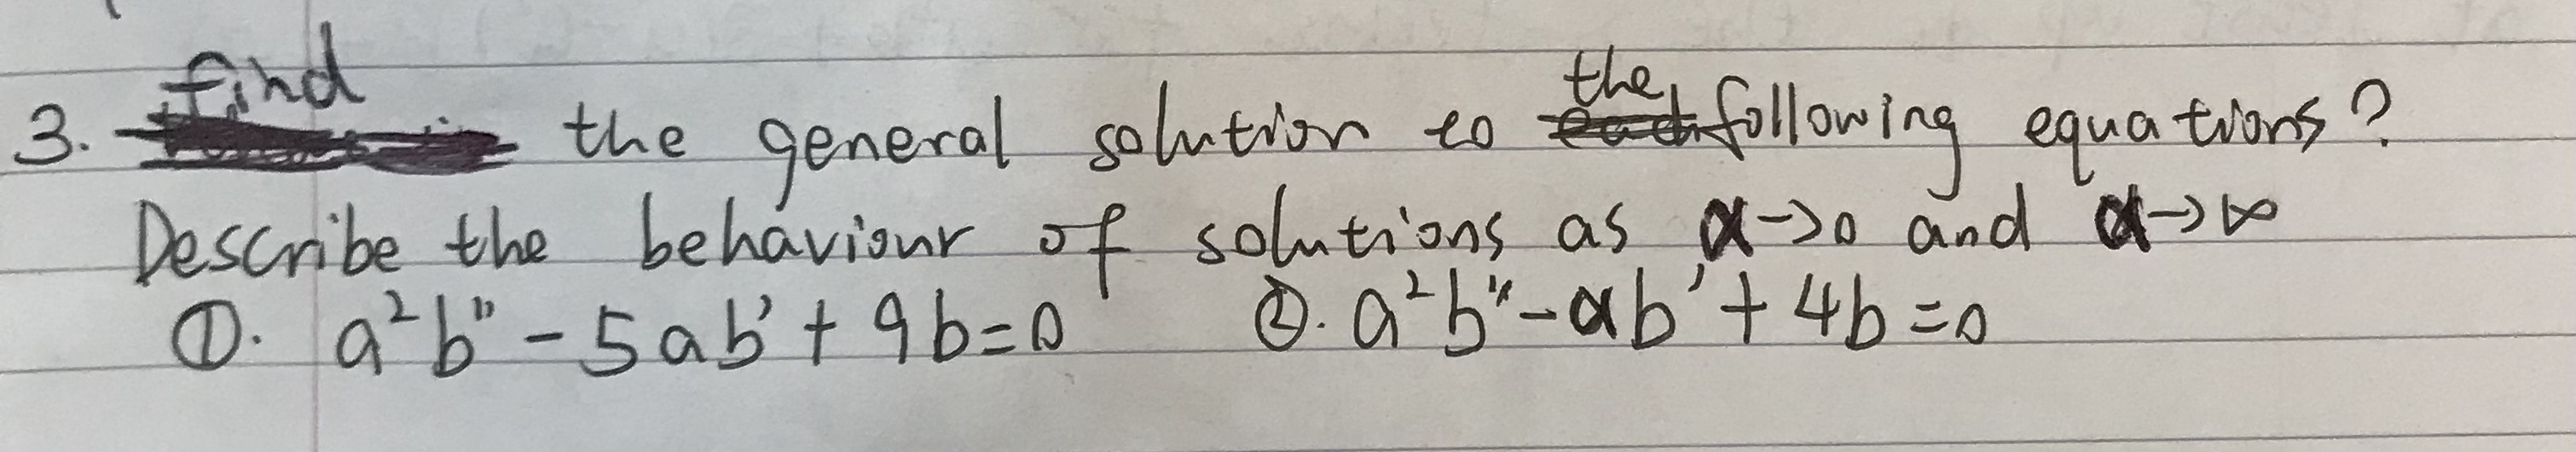 3. find the general solution to the following equations?
Describe the behaviour of solutions as a→0 and a→∞
①. a²b" - 5ab' + 9b=0 ②. a²b" - ab' + 4b=0